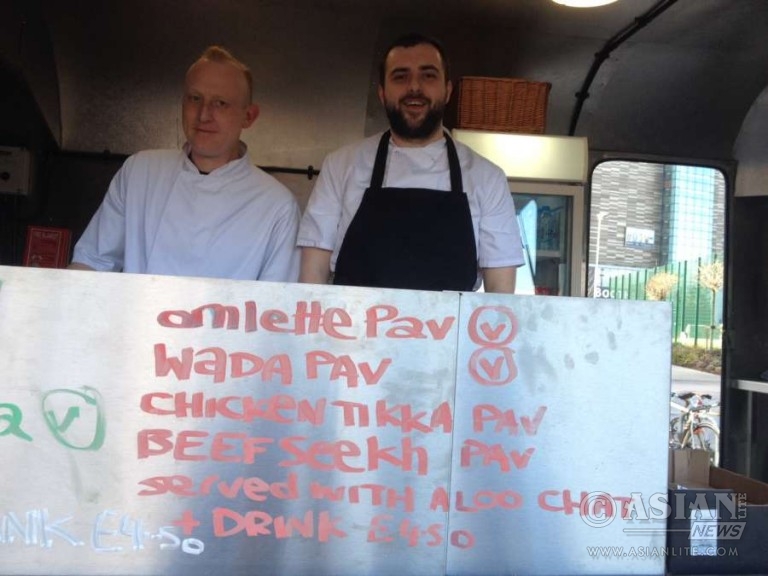 omlette Pav V
WADA PAV V
CHICKEN TIKKA PAV
a V
BEEF Seekh PAV
served WITH ALOO CHAT
+ DRINK £4.50
NK £4.50
© ASIAN LITE
NEWS
WWW.ASIANLITE.COM